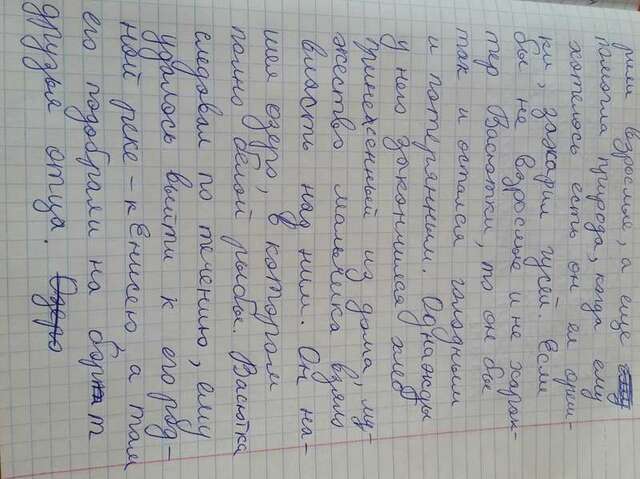 рили взрослые, а еще
помогла природа, когда ему
хотелось есть он ел ореш-
ки, зажарил гусей. Если
бы не взрослые и не харак-
тер Васютки, то он бы
так и остался голодным
и потерянным. Однажды
у него закончился хлеб
принесенный из дома, му-
жество мальчика взяло
власть над ним. Он на-
шел озеро, в котором
полно белой рыбы. Васютка
следовал по течению, ему
удалось выйти к его род-
ной реке - к Енисею, а там
его подобрали на борт
друзья отца. Озеро